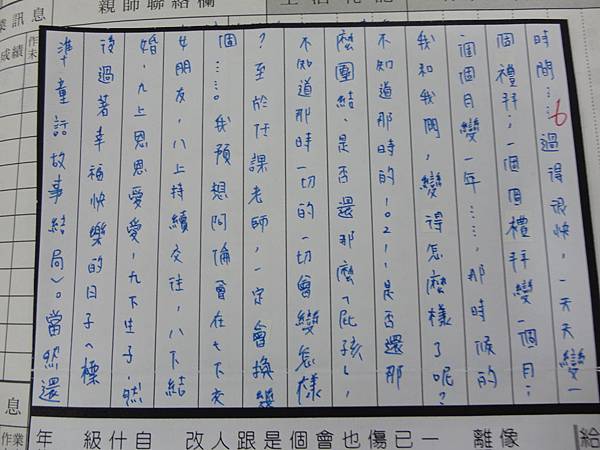 親師聯絡欄
業訊息
成績
作
未
時間……過得很快,一天天變一
個禮拜;一個個禮拜變一個月;
一個個月變一年……,那時候的
我和我們,變得怎麼樣了呢?
不知道那時的1021是否還那
麼團結、是否還那麼「屁孩」,
不知道那時一切的一切會變怎樣
?至於任課老師,一定會換幾
個……。我預想阿倫會在七下交
女朋友,八上持續交往,八下結
婚,九上恩恩愛愛,九下生子,然
後過著幸福快樂的日子(標
準童話故事結局)。當然還
6
息
作業
年 級什自 改人跟是個會也傷已一 離像
給